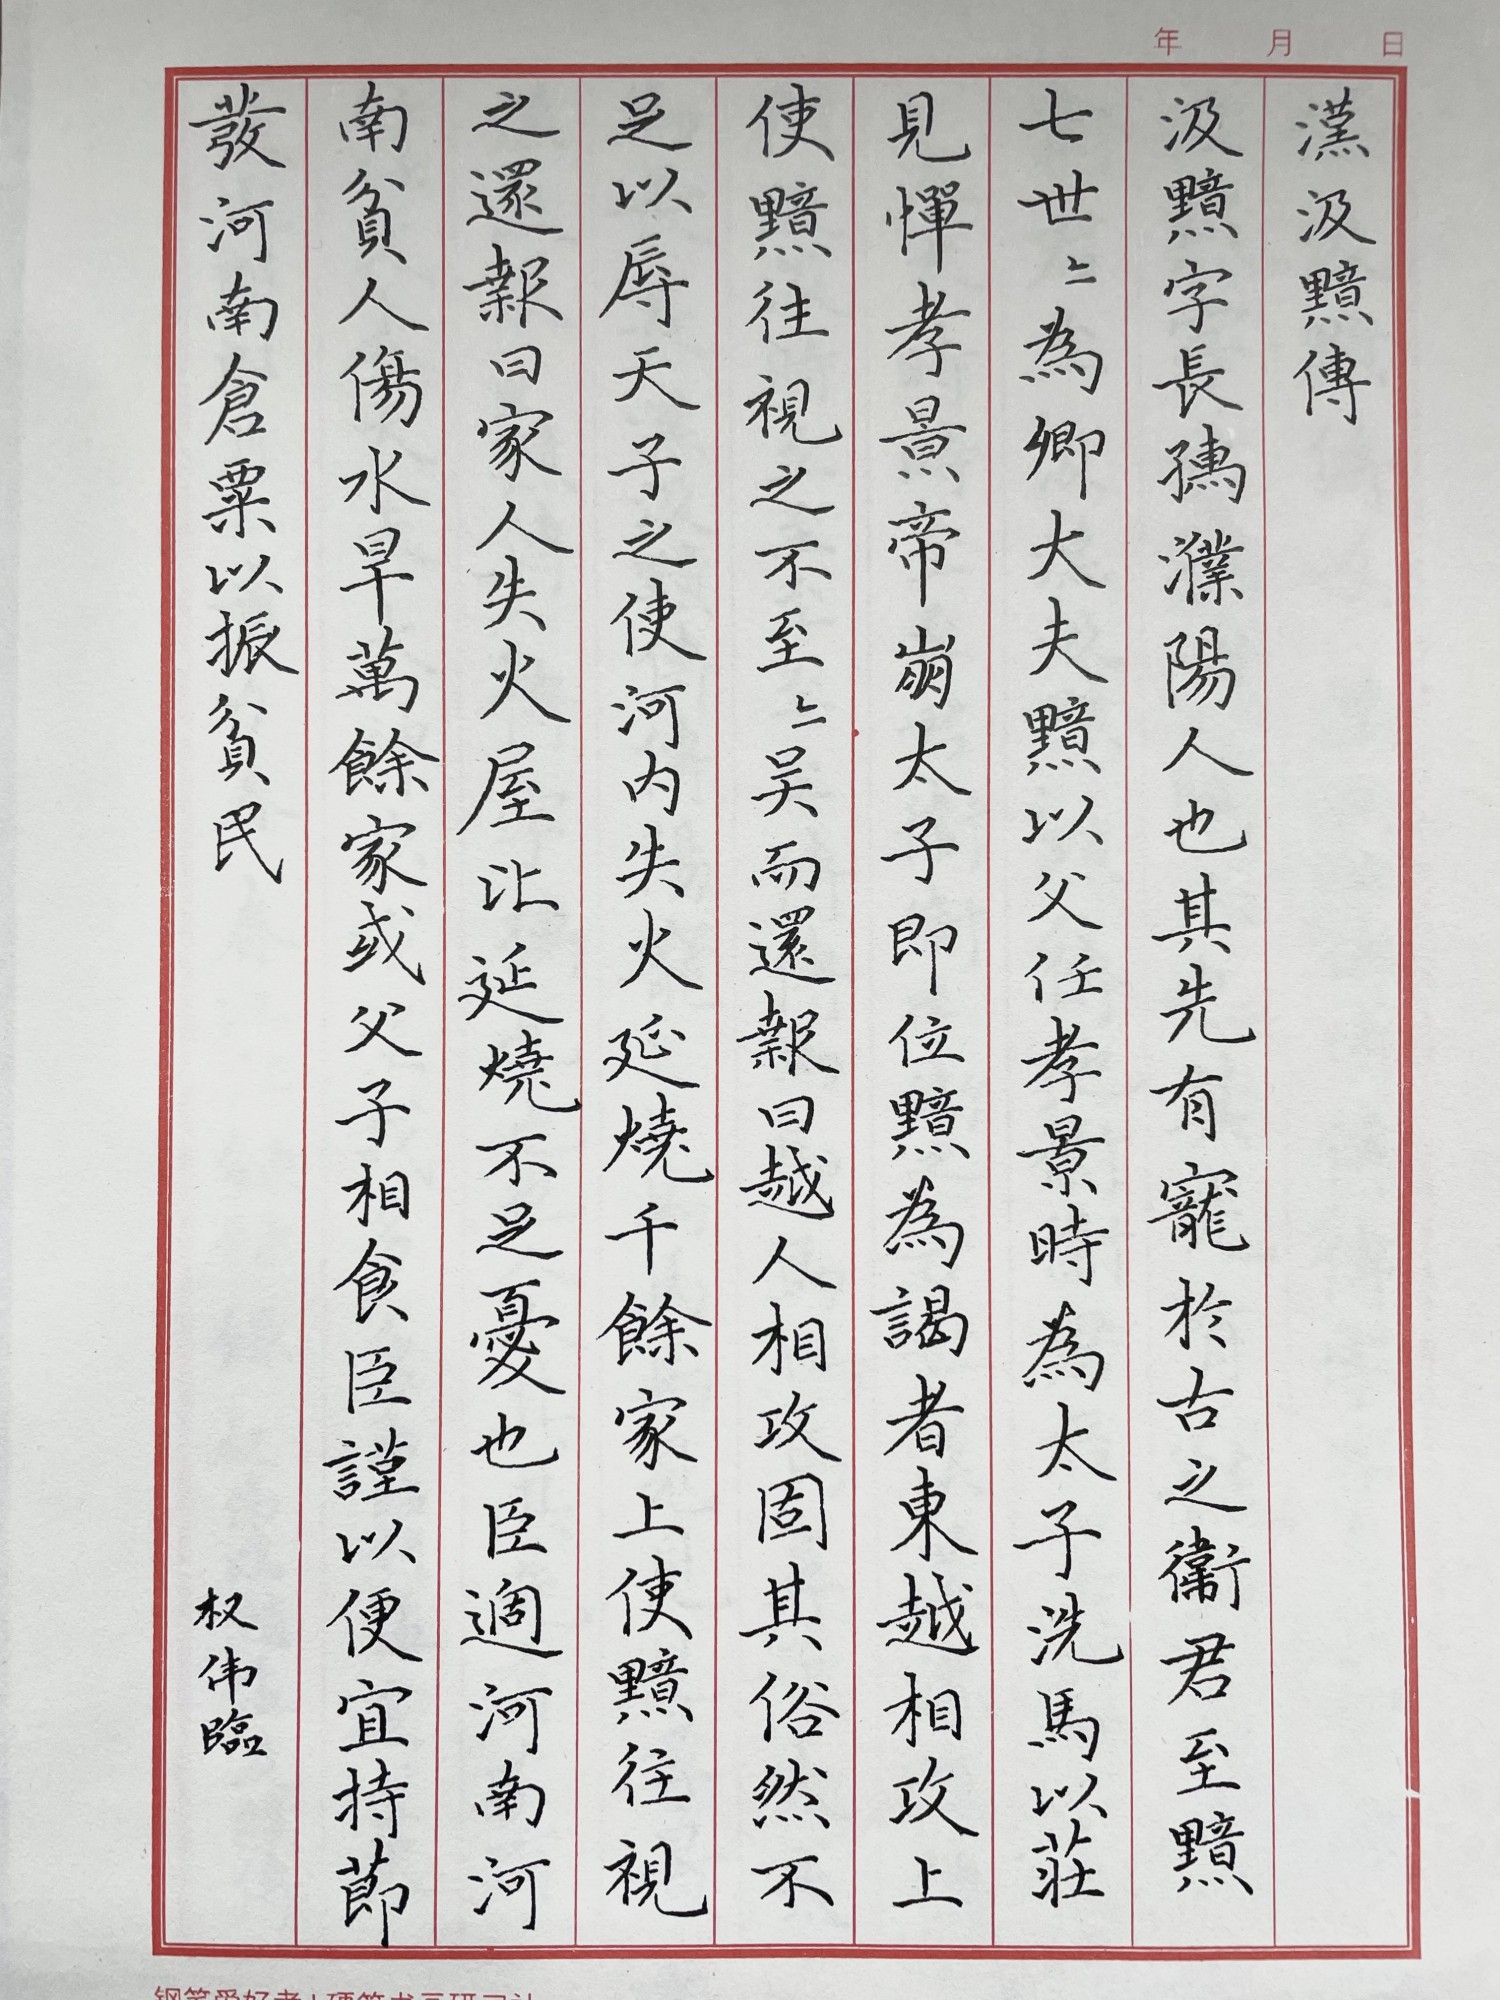 年 月 日
漢汲黯傳
汲黯字長孺濮陽人也其先有寵於古之衞君至黯
七世〻為卿大夫黯以父任孝景時為太子洗馬以莊
見憚孝景帝崩太子即位黯為謁者東越相攻上
使黯往視之不至〻吴而還報曰越人相攻固其俗然不
足以辱天子之使河内失火延燒千餘家上使黯往視
之還報曰家人失火屋比延燒不足憂也臣過河南河
南貧人傷水旱萬餘家或父子相食臣謹以便宜持節
發河南倉粟以振貧民
权伟臨